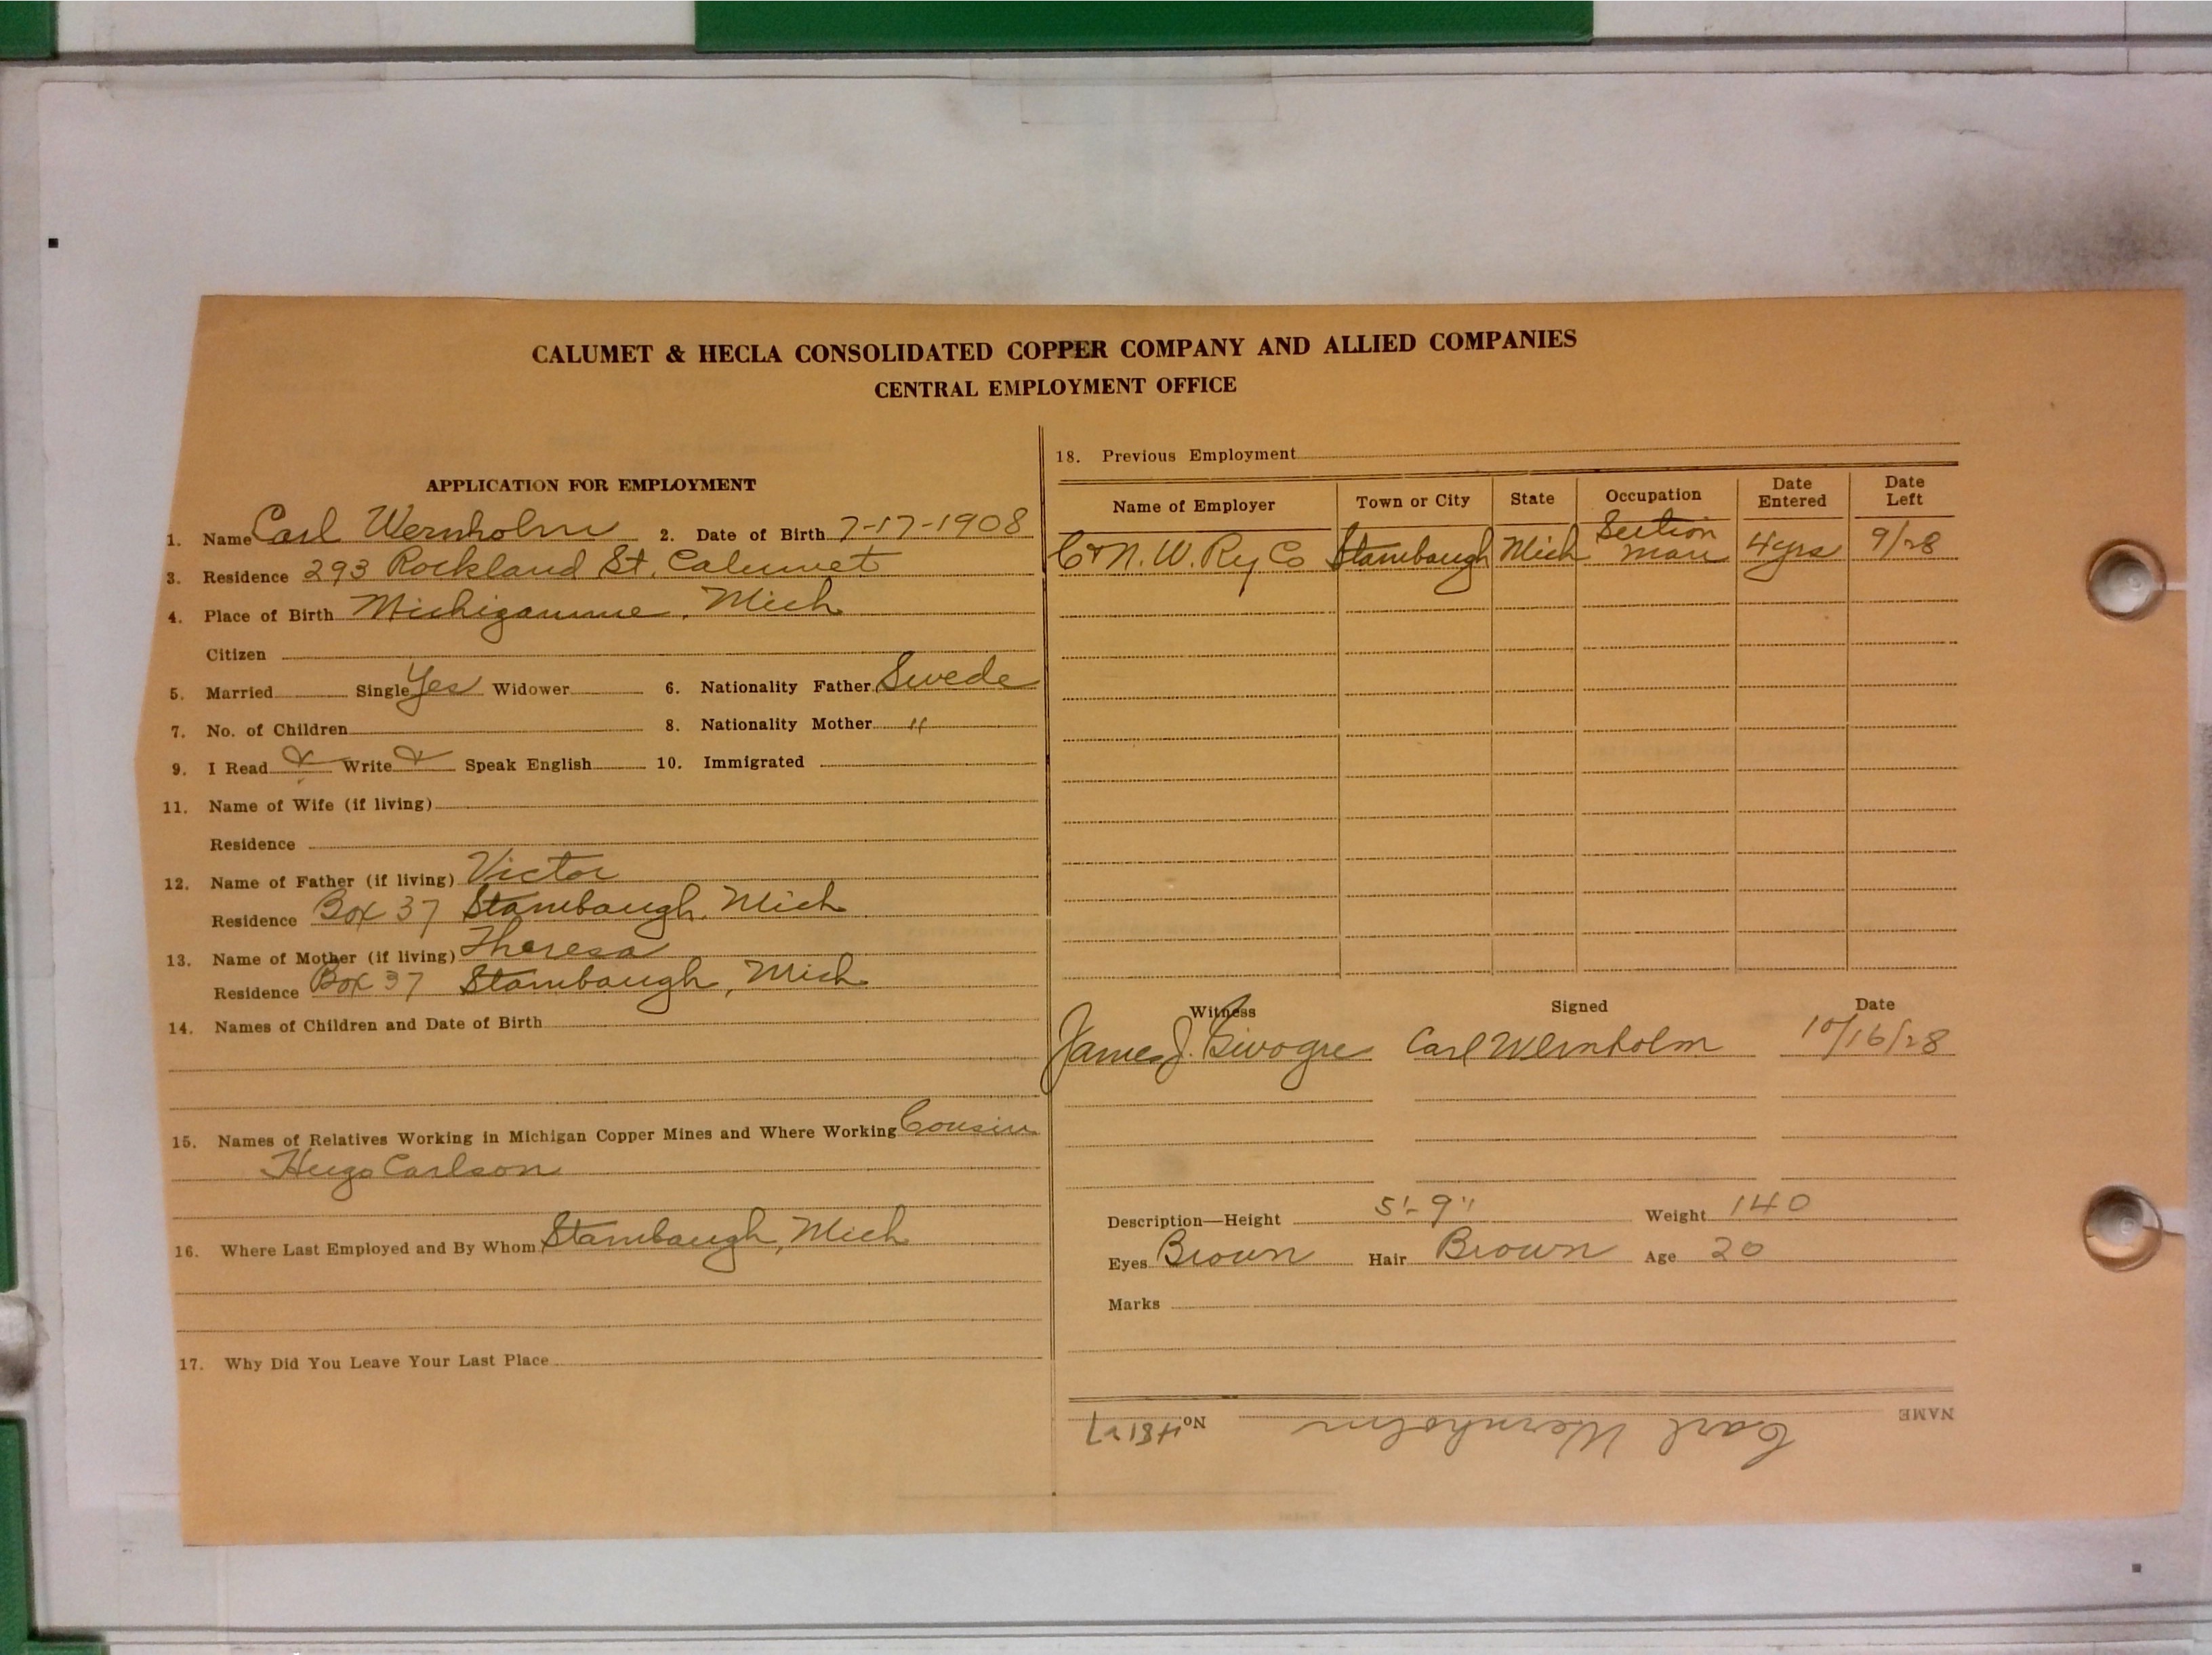 CALUMET & HECLA CONSOLIDATED COPPER COMPANY AND ALLIED COMPANIES
CENTRAL EMPLOYMENT OFFICE
APPLICATION FOR EMPLOYMENT
1. Name Carl Wernholm 2. Date of Birth 7-17-1908
3. Residence 293 Rockland St, Calumet
4. Place of Birth Michigamme, Mich
Citizen
5. Married Single Yes Widower 6. Nationality Father Swede
7. No. of Children 8. Nationality Mother "
9. I Read Write Speak English 10. Immigrated
11. Name of Wife (if living)
Residence
12. Name of Father (if living) Victor
Residence Box 37 Stambaugh, Mich
13. Name of Mother (if living) Theresa
Residence Box 37 Stambaugh, Mich
14. Names of Children and Date of Birth
15. Names of Relatives Working in Michigan Copper Mines and Where Working Cousin
Hugo Carlson
16. Where Last Employed and By Whom Stambaugh, Mich
17. Why Did You Leave Your Last Place
18. Previous Employment
Name of Employer Town or City State Occupation Date Entered Date Left
C & N. W. Ry Co Stambaugh Mich Section man 4 yrs 9/28
Witness Signed Date
James J. Carl Wernholm 10/16/28
Description—Height 5'-9" Weight 140
Eyes Brown Hair Brown Age 20
Marks
NAME Carl Wernholm No.